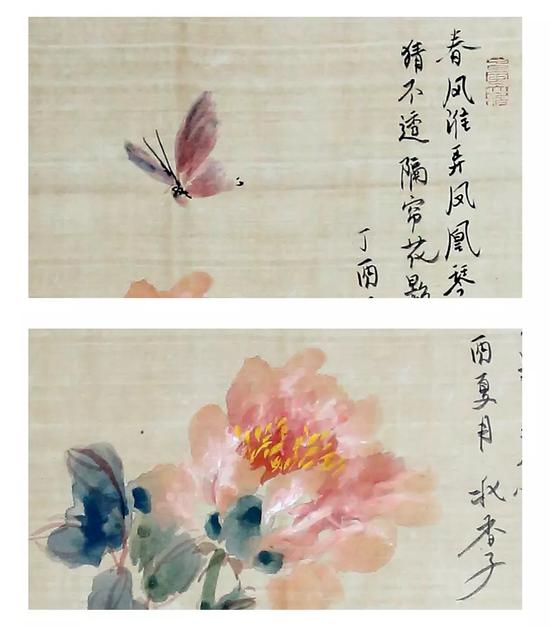 春风谁弄凤凰琴
猜不透隔帘花影
丁酉
酉夏月 秋香子